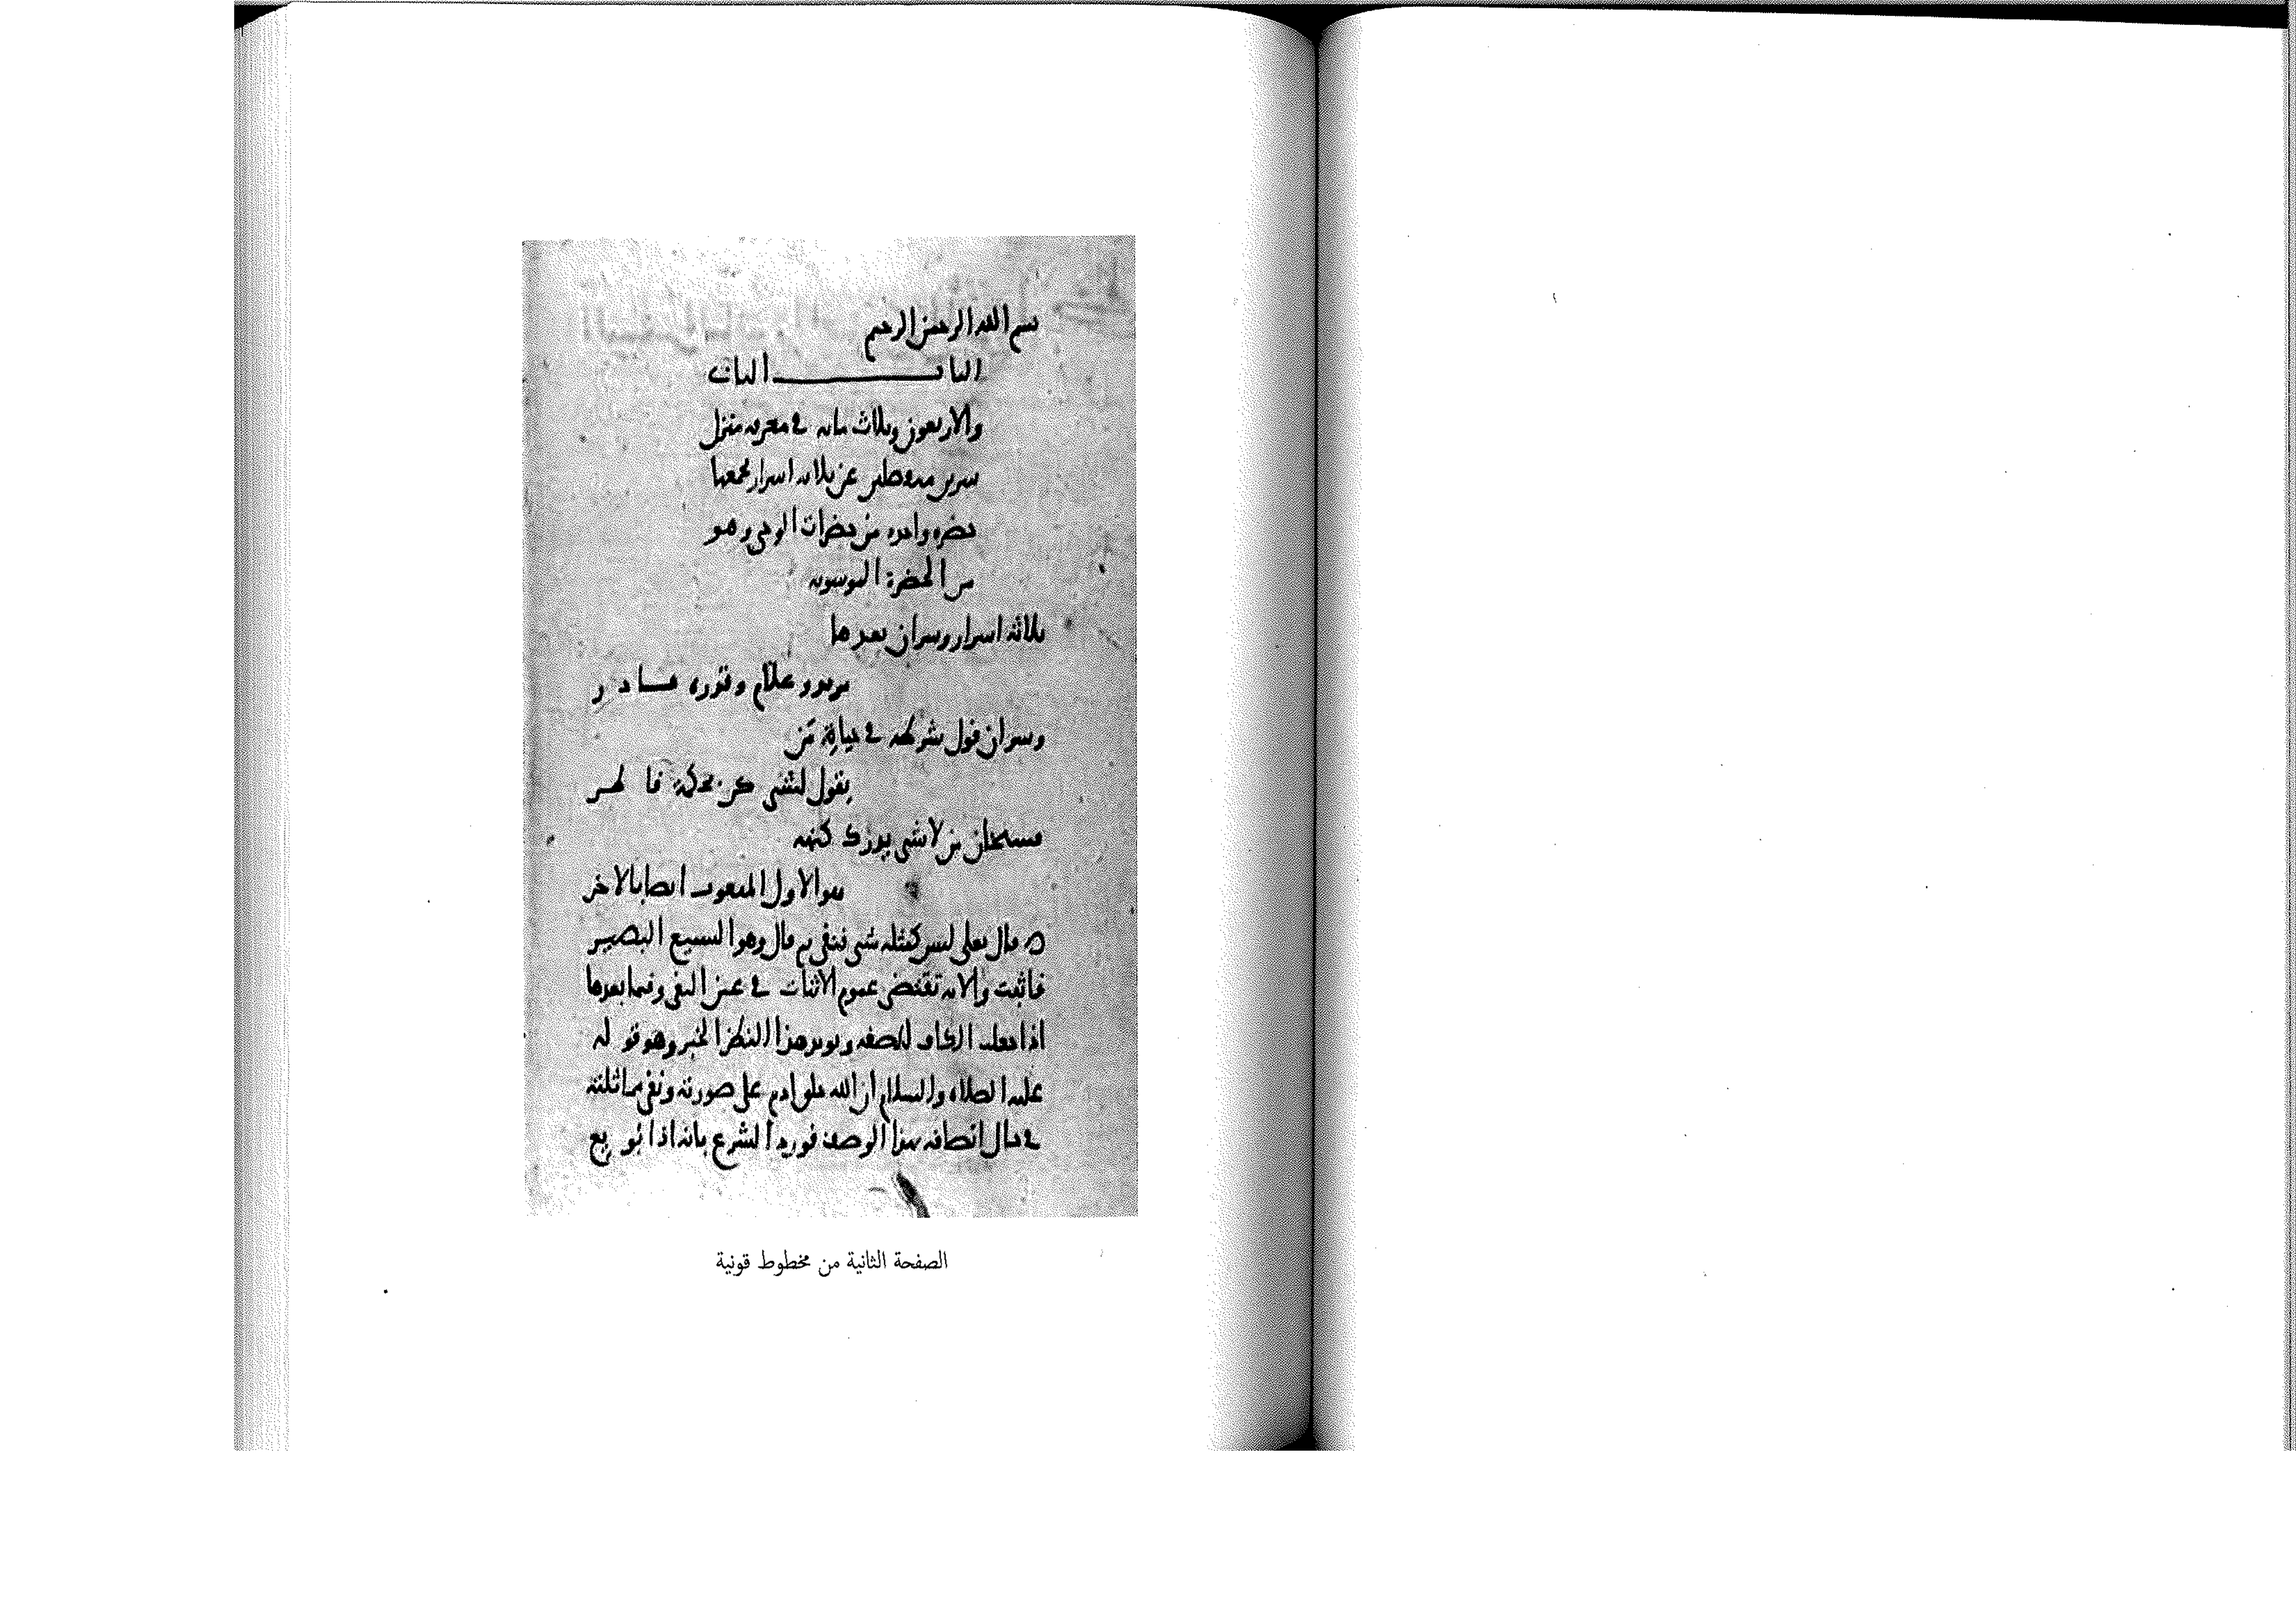 بسم الله الرحمن الرحيم
الباب الثاني
والاربعون وثلاث مائه في معرفه منزل
سرين منفصلين عن ثلاثه اسرار يجمعها
حضره واحده من حضرات الوحي وهو
من الحضرة الموسويه
ثلاثة اسرار وسران بعدها
بربرو علام وقدره قادر
وسران قول شرطه في حياة من
يقول لشي كن بحكمة قاهر
فسبحان من لا شي يدرك كنهه
هو الاول المنعوت ايضا بالاخر
قال تعلى ليس كمثله شي فنفى ثم قال وهو السميع البصير
فاثبت والايه تقتضي عموم الاثبات في عين النفي وفيما بعدها
اذا جعلت الكاف للصفه ويويد هذا النظر الخبر وهو قوله
عليه الصلاه والسلام ان الله خلق ادم على صورته ونفى مماثلته
في حال اتصافه بهذا الوصف فورد الشرع بانه اذا بويع
الصفحة الثانية من مخطوط قونية